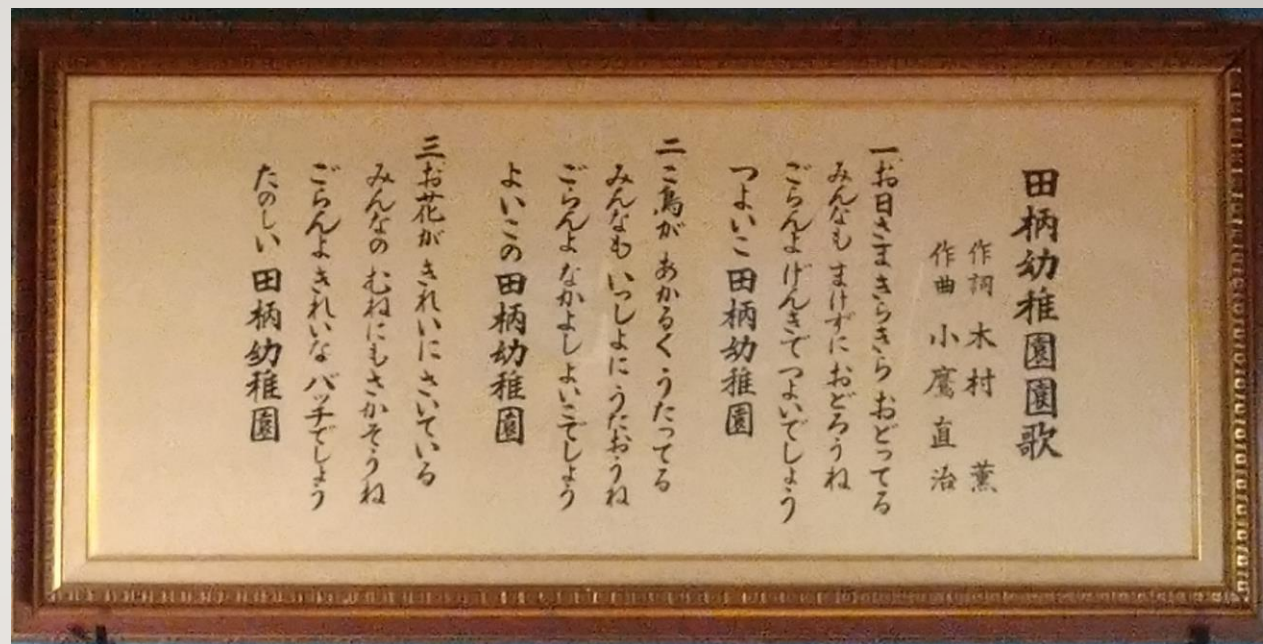 田柄幼稚園園歌
作詞 木村 薫
作曲 小鷹直治
一お日さまきらきら おどってる
みんなも まけずに おどろうね
ごらんよ げんきで つよいでしょう
つよいこ 田柄幼稚園
二こ鳥が あかるく うたってる
みんなも いっしょに うたおうね
ごらんよ なかよし よいこでしょう
よいこの 田柄幼稚園
三お花が きれいに さいている
みんなの むねにも さかそうね
ごらんよ きれいな バッチでしょう
たのしい 田柄幼稚園